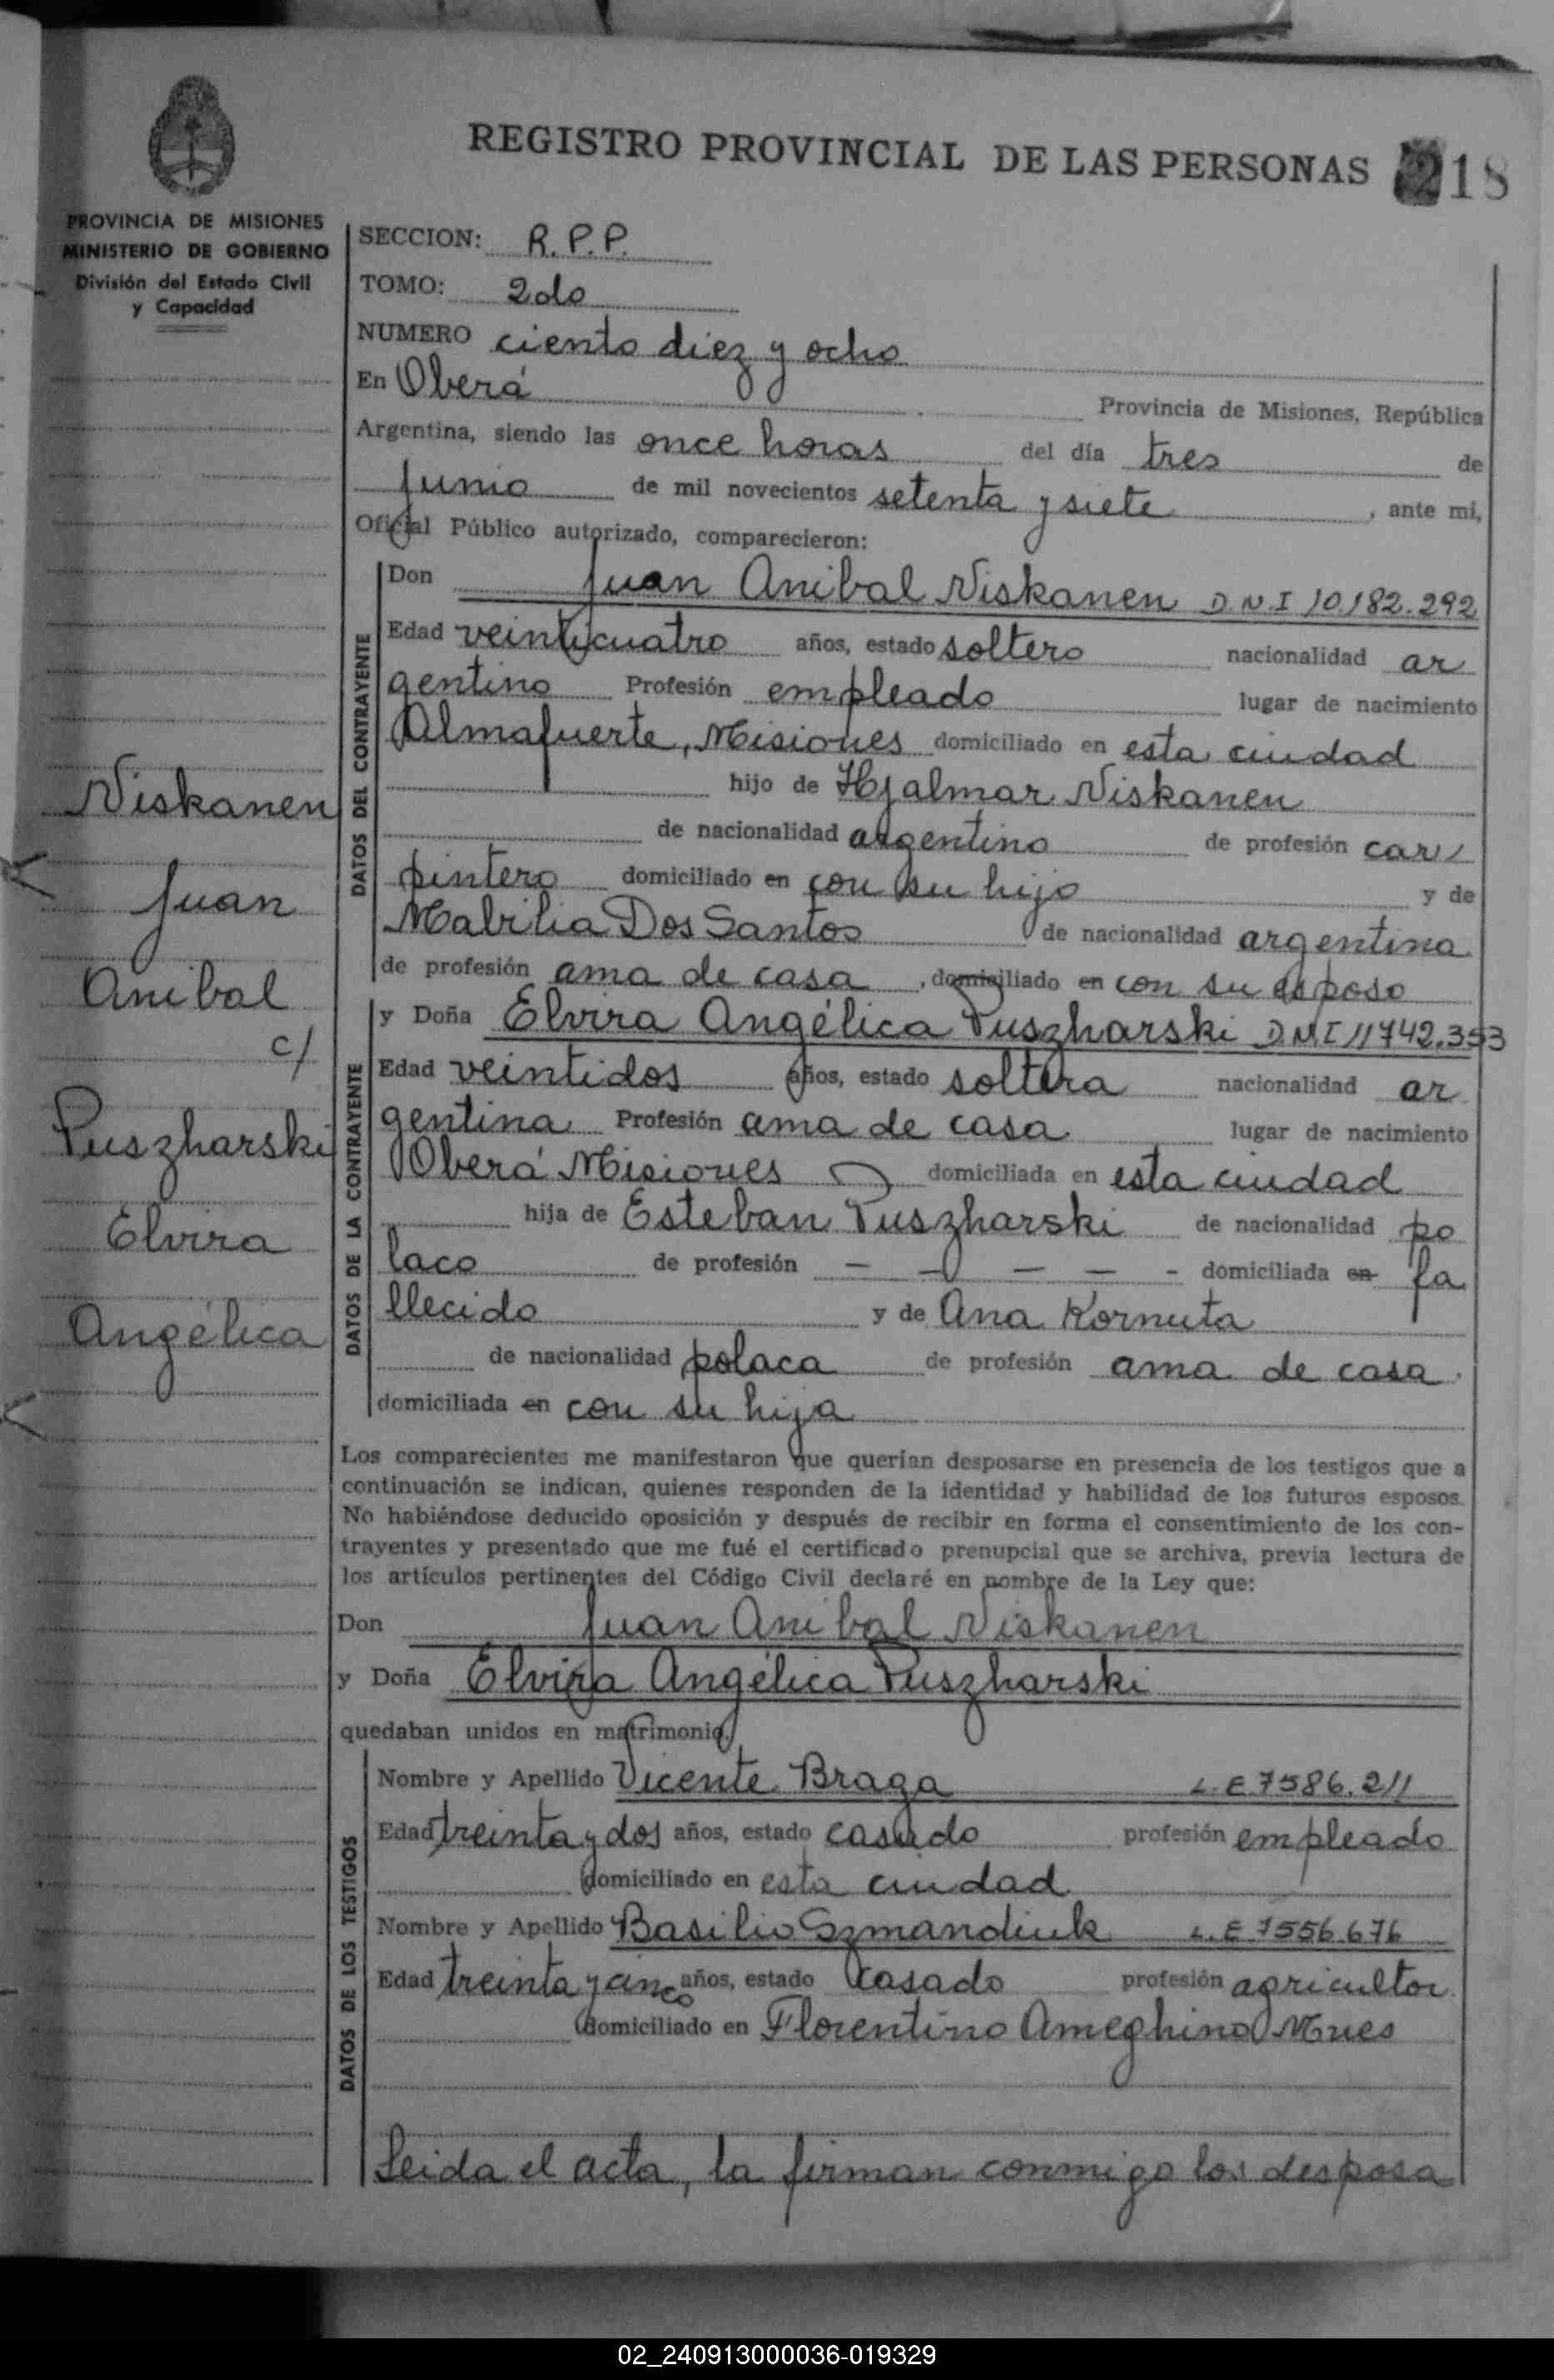 REGISTRO PROVINCIAL DE LAS PERSONAS 218
PROVINCIA DE MISIONES
MINISTERIO DE GOBIERNO
División del Estado Civil
y Capacidad
SECCION: R.P.P.
TOMO: 2do
NUMERO ciento diez y ocho
En Oberá Provincia de Misiones, República
Argentina, siendo las once horas del día tres de
Junio de mil novecientos setenta y siete, ante mi,
Oficial Público autorizado, comparecieron:
DATOS DEL CONTRAYENTE
Don Juan Anibal Niskanen D.N.I 10.182.292
Edad veinticuatro años, estado soltero nacionalidad ar
gentino Profesión empleado lugar de nacimiento
Almafuerte, Misiones domiciliado en esta ciudad
hijo de Hjalmar Niskanen
de nacionalidad argentino de profesión car
pintero domiciliado en con su hijo y de
Mabilia Dos Santos de nacionalidad argentina
de profesión ama de casa, domiciliado en con su esposo
DATOS DE LA CONTRAYENTE
y Doña Elvira Angélica Puszharski D.N.I 11742.353
Edad veintidos años, estado soltera nacionalidad ar
gentina Profesión ama de casa lugar de nacimiento
Oberá Misiones domiciliada en esta ciudad
hija de Esteban Puszharski de nacionalidad po
laco de profesión - - - - - domiciliada en fa
llecido y de Ana Kornuta
de nacionalidad polaca de profesión ama de casa
domiciliada en con su hija
Niskanen
Juan
Anibal
c/
Puszharski
Elvira
Angélica
Los comparecientes me manifestaron que querían desposarse en presencia de los testigos que a
continuación se indican, quienes responden de la identidad y habilidad de los futuros esposos.
No habiéndose deducido oposición y después de recibir en forma el consentimiento de los con-
trayentes y presentado que me fué el certificado prenupcial que se archiva, previa lectura de
los artículos pertinentes del Código Civil declaré en nombre de la Ley que:
Don Juan Anibal Niskanen
y Doña Elvira Angélica Puszharski
quedaban unidos en matrimonio.
DATOS DE LOS TESTIGOS
Nombre y Apellido Vicente Braga L.E.7586.211
Edad treinta y dos años, estado casado profesión empleado
domiciliado en esta ciudad
Nombre y Apellido Basilio Szmandiuk L.E 7556.676
Edad treinta y cinco años, estado casado profesión agricultor
domiciliado en Florentino Ameghino Mnes
Leida el acta, la firman conmigo los desposa
02_240913000036-019329